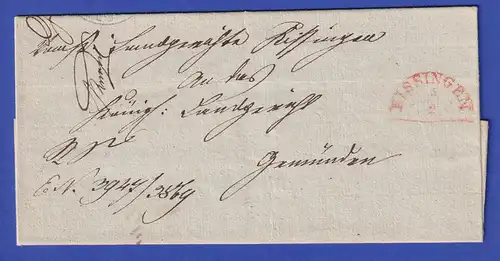 Vom k. Landgerichte Kissingen
An das
Königl: Landgericht
KISSINGEN
Gemünden
E. N. 3947/3869